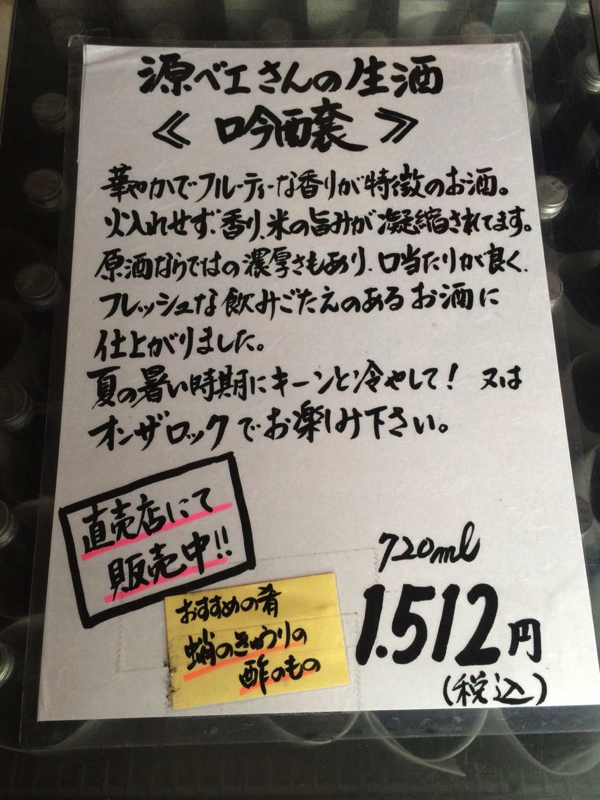 源べエさんの生酒
≪ 吟醸 ≫
華やかでフルーティーな香りが特徴のお酒。
火入れせず、香り、米の旨みが凝縮されてます。
原酒ならではの濃厚さもあり、口当たりが良く、
フレッシュな飲みごたえのあるお酒に
仕上がりました。
夏の暑い時期にキーンと冷やして! 又は
オンザロックでお楽しみ下さい。
直売店にて
販売中!!
おすすめの肴
蛸のきゅうりの
酢のもの
720ml
1.512円
(税込)